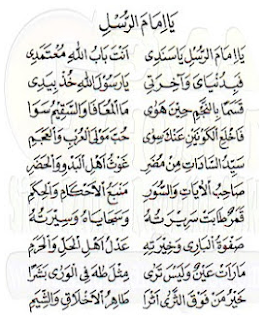 يَا اِمَامَ الرُّسْلِ
يَا اِمَامَ الرُّسْلِ يَاسَنَدِى اَنْتَ بَابُ اللهِ مُعْتَمَدِى
فَبِدُنْيَايَ وَآخِرَتِى يَارَسُوْلَ اللهِ خُذْ بِيَدِى
قَسَمًا بِالنَّجْمِ حِيْنَ هَوٰى مَاالْمُعَافَى وَالسَّقِيْمُ سَوَا
فَاخْلَعِ الْكَوْنَيْنِ عَنْكَ سِوٰى حُبِّ مَوْلَى الْعُرْبِ وَالْعَجَمِ
سَيِّدُ السَّادَاتِ مِنْ مُضَرَ غَوْثُ اَهْلِ الْبَدْوِ وَالْحَضَرِ
صَاحِبُ الْاٰيَاتِ وَالسُّوَرِ مَنْبَعُ الْاَحْكَامِ وَالْحِكَمِ
قَمَرٌ طَابَتْ سَرِيْرَتُهُ وَسَجَايَاهُ وَسِيْرَتُهُ
صَفْوَةُ الْبَارِى وَخِيْرَتُهُ عَدْلُ اَهْلِ الْحِلِّ وَالْحَرَمِ
مَارَاَتْ عَيْنٌ وَلَيْسَ تَرٰى مِثْلَ طٰهَ فِى الْوَرٰى بَشَرَا
خَيْرُ مَنْ فَوْقَ الثَّرٰى اَثَرَا طَاهِرُ الْاَخْلَاقِ وَالشِّيَمِ